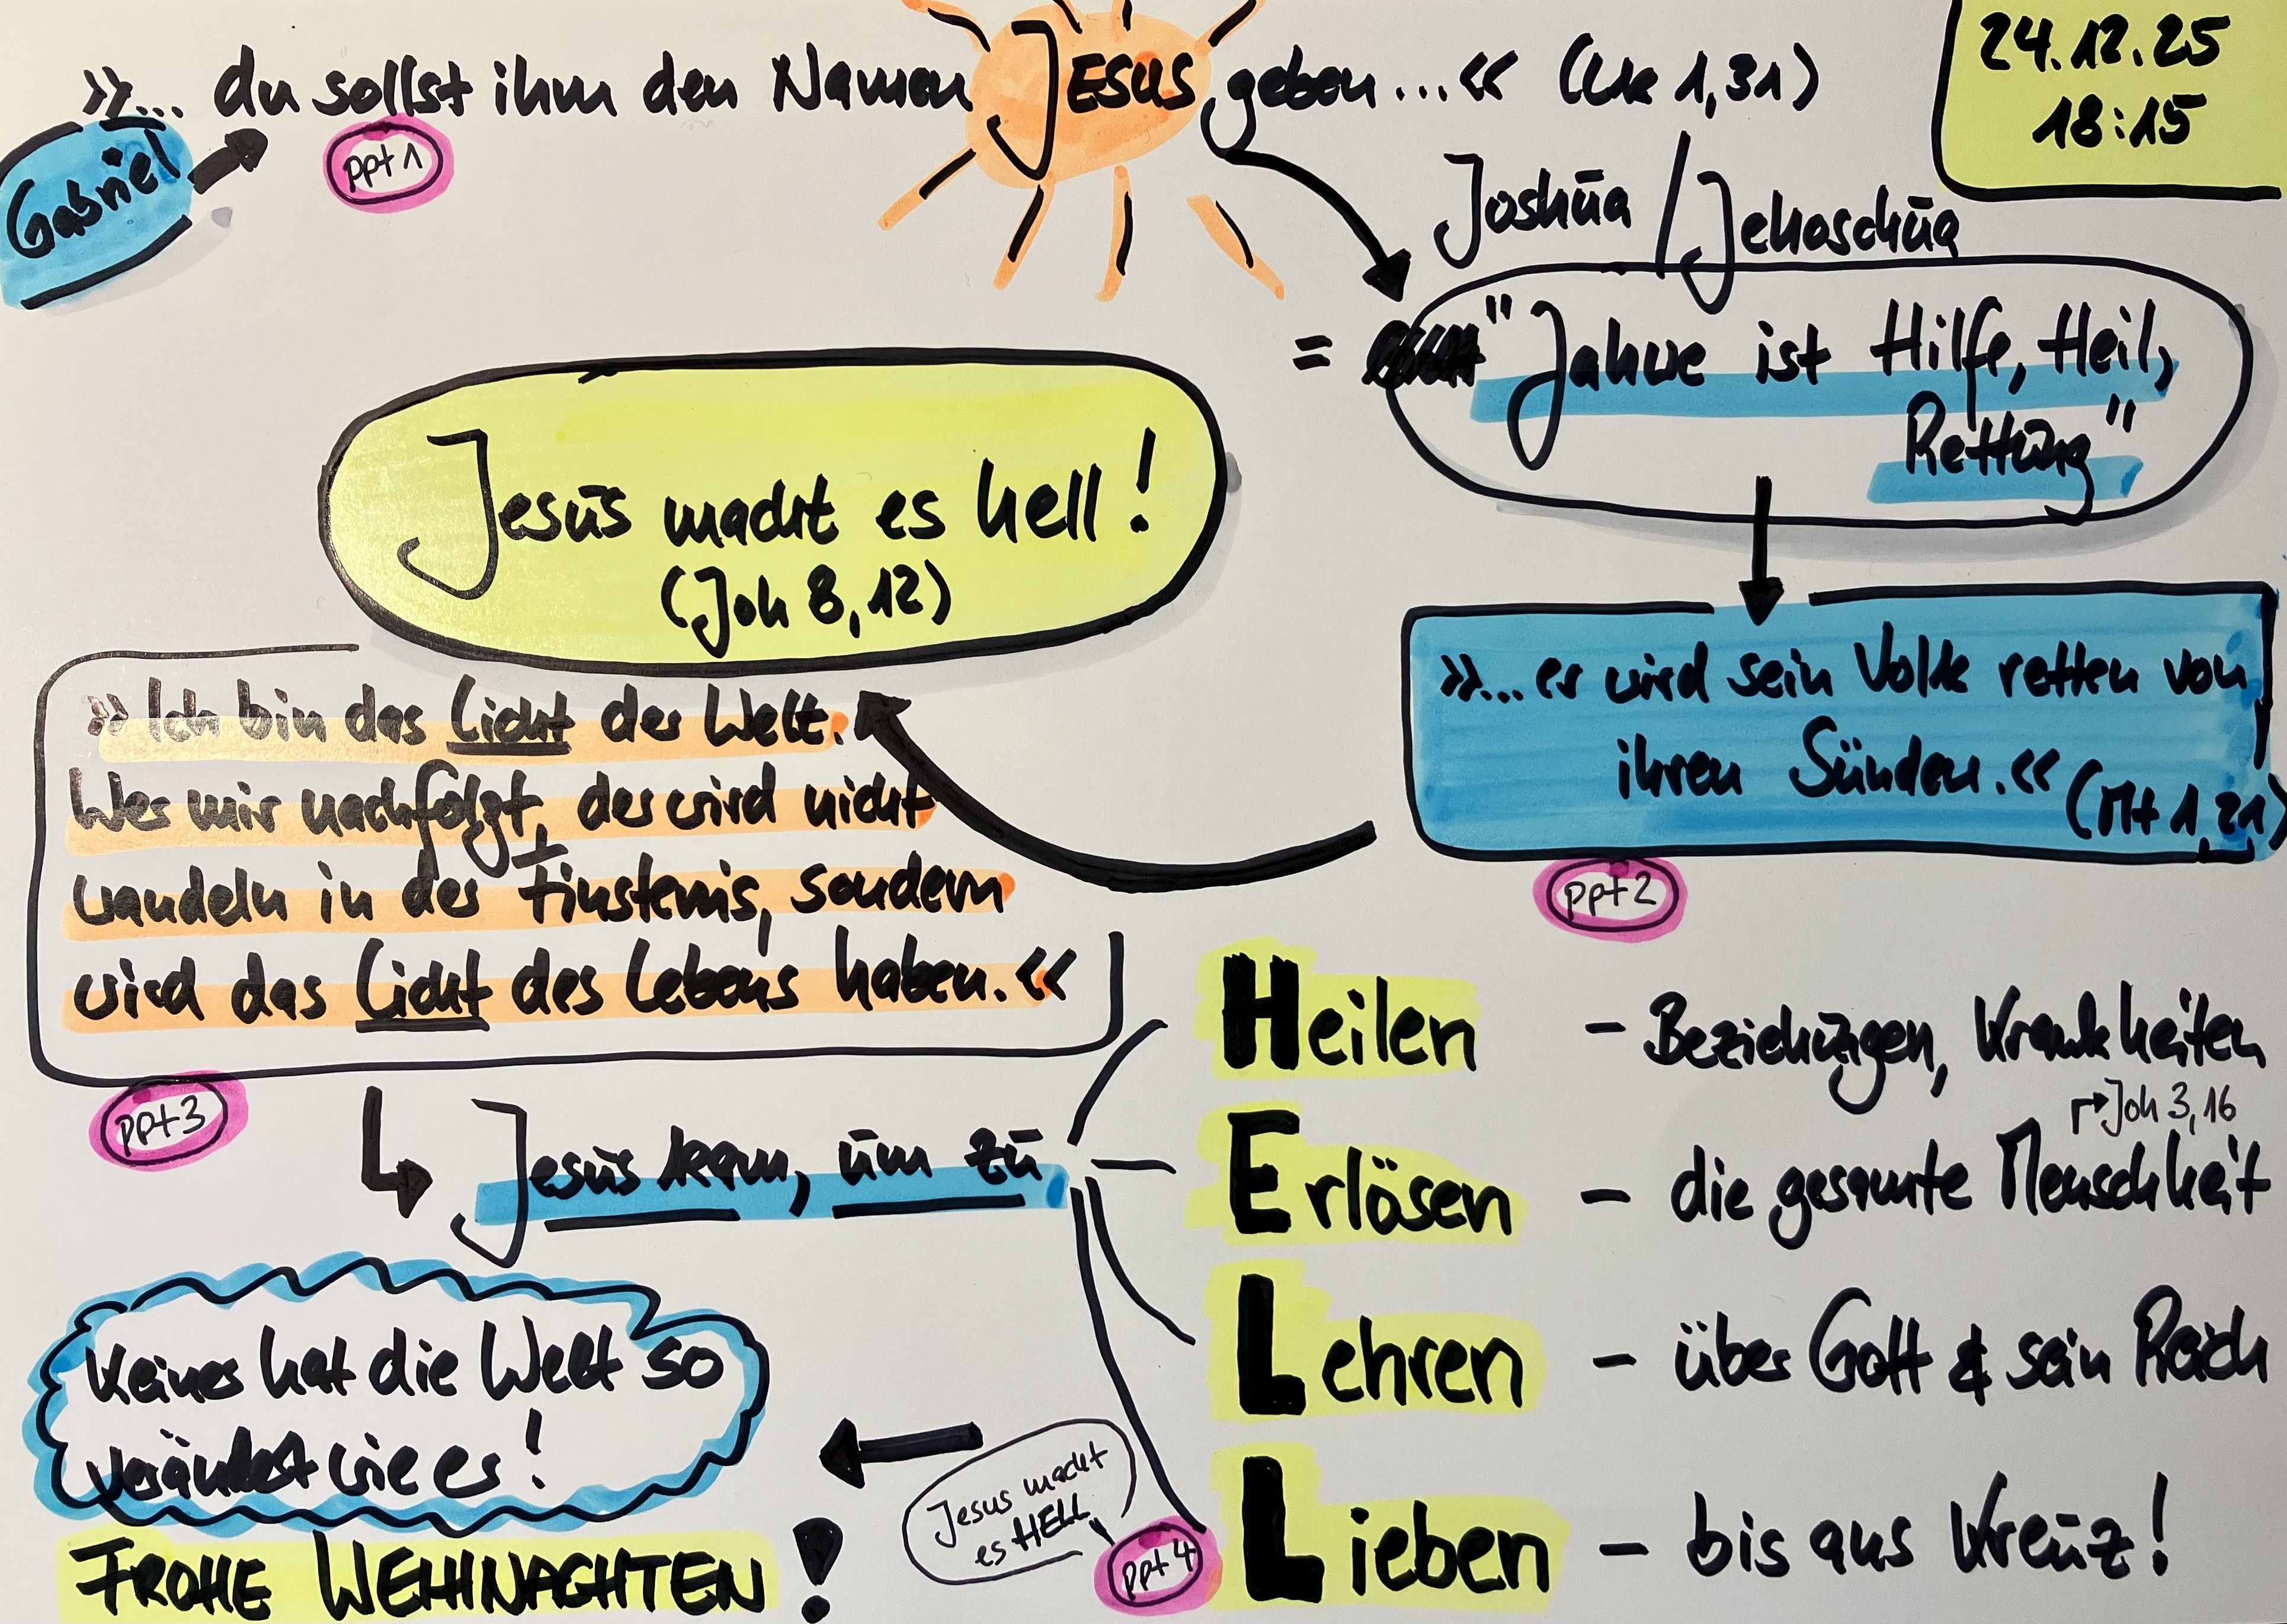 »... du sollst ihm den Namen JESUS geben...« (Lk 1,31)
24.12.25
18:15
Gabriel
ppt 1
Joshua / Jehoschua
= "Jahwe ist Hilfe, Heil,
Rettung"
Jesus macht es hell!
(Joh 8,12)
»... er wird sein Volk retten von
ihren Sünden.«
(Mt 1,21)
ppt 2
»Ich bin das Licht der Welt.
Wer mir nachfolgt, der wird nicht
wandeln in der Finsternis, sondern
wird das Licht des Lebens haben.«
ppt 3
Jesus kam, um zu
Heilen - Beziehungen, Krankheiten
Joh 3,16
Erlösen - die gesamte Menschheit
Lehren - über Gott & sein Reich
Lieben - bis ans Kreuz!
ppt 4
Jesus macht
es HELL
Keiner hat die Welt so
verändert wie er!
FROHE WEIHNACHTEN!